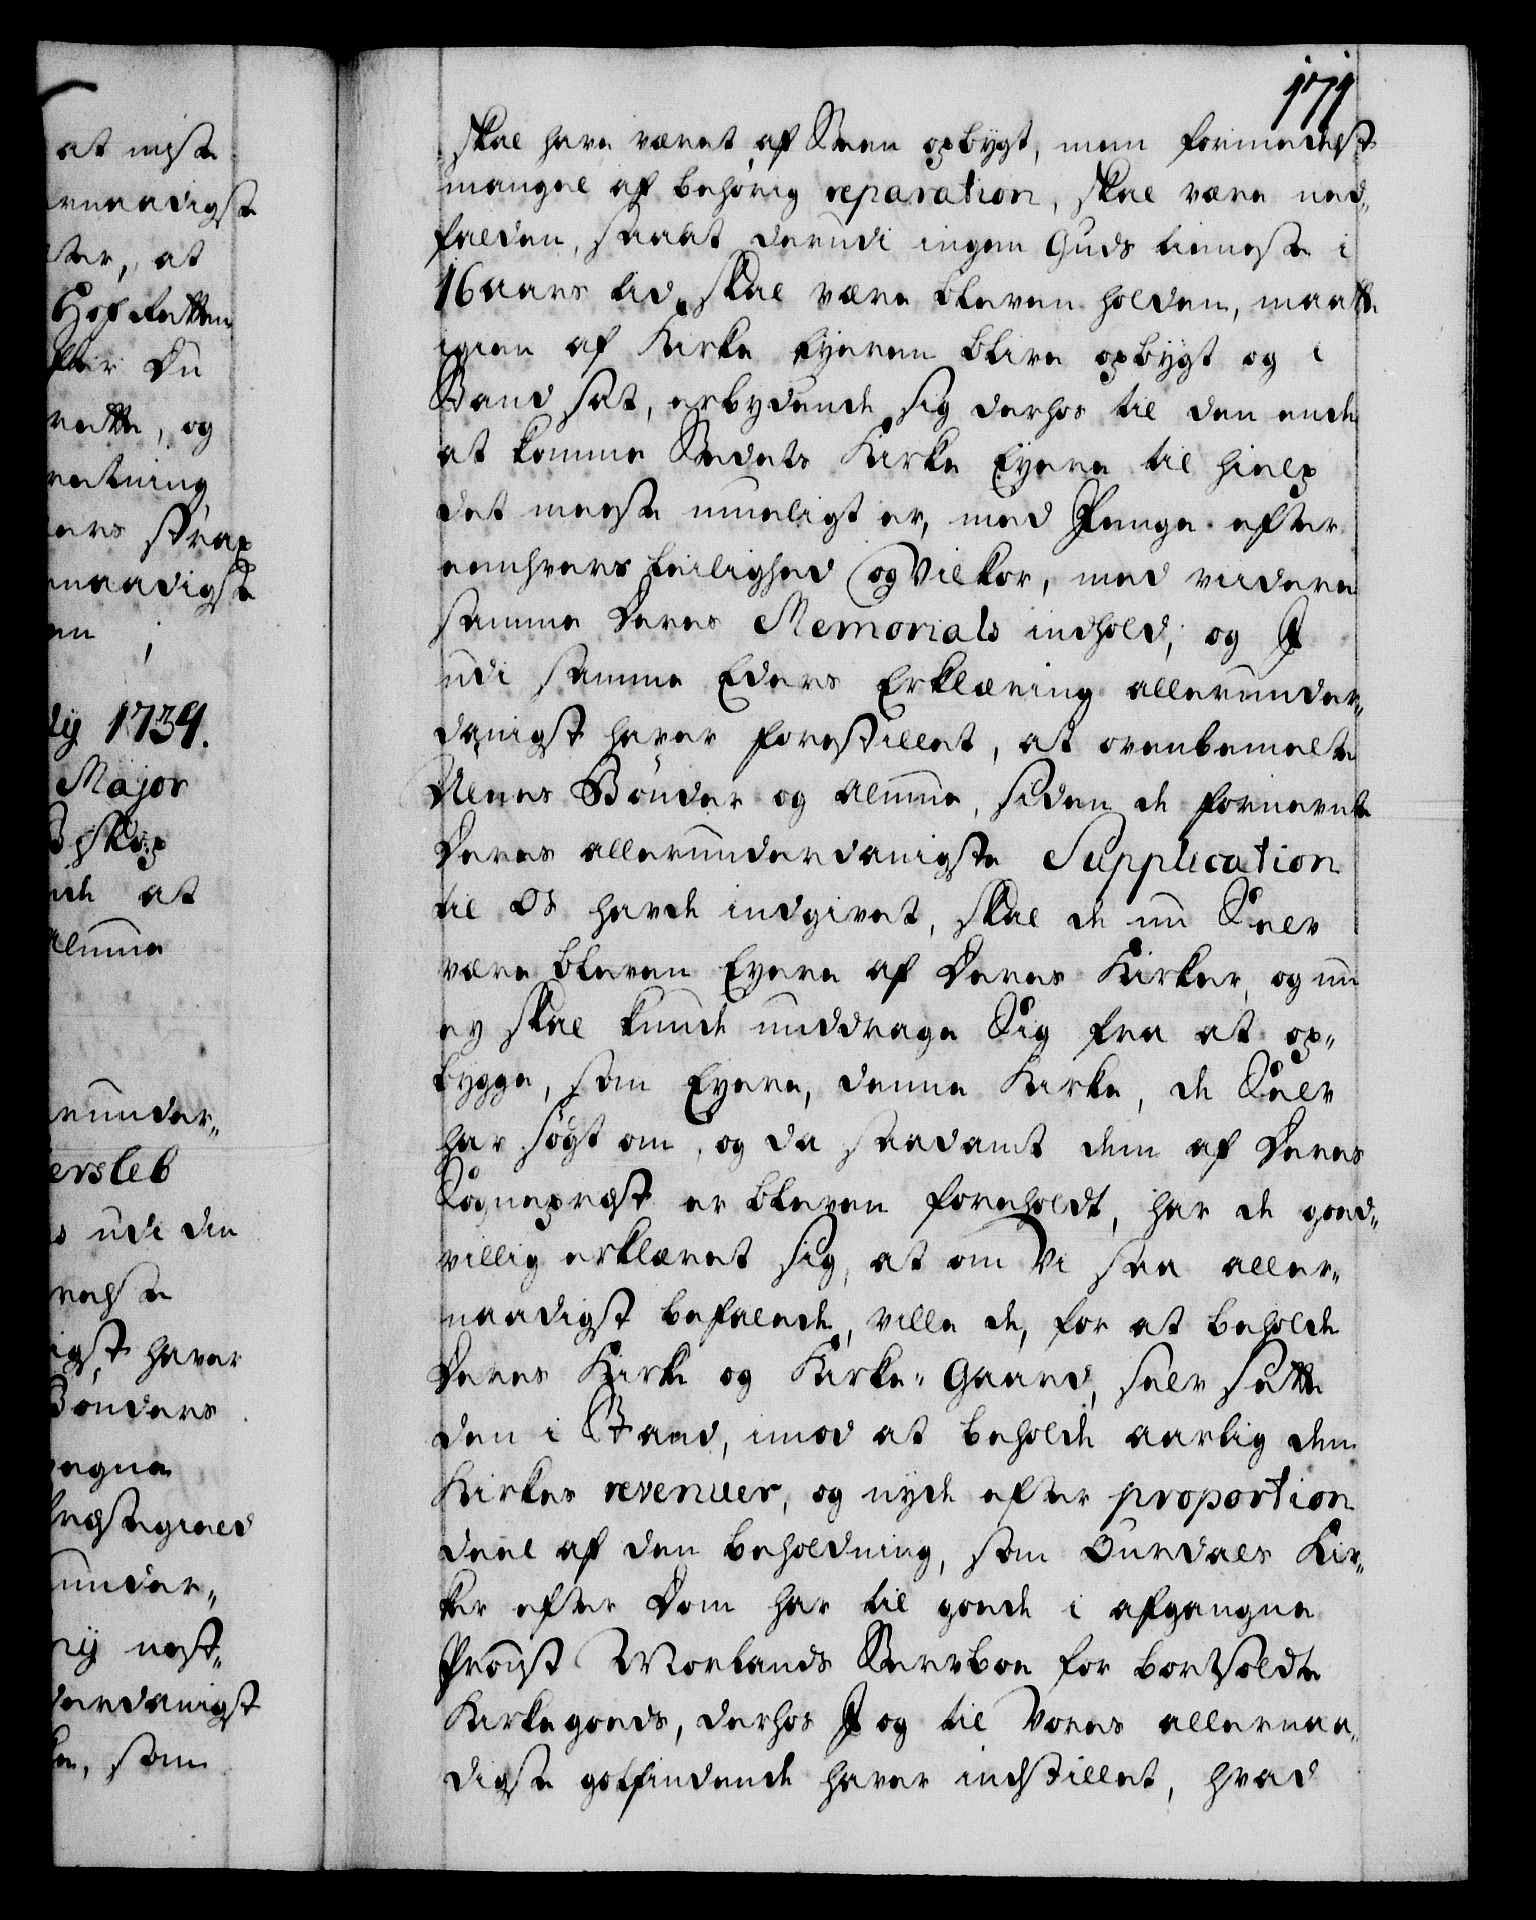 171
skal have været af Steen opbygt, men formedelst
mangel af behörig reparation, skal være ned„
falden, saa at derudi ingen Guds tieneste i
16 aars tid skal være bleven holden, maatte
igien af Kirke Eyeren blive opbygt og i
Stand sat, erbydende sig derhos til den ende
at komme Stedets Kirke Eyere til hielp
det meeste mueligt er, med Penge efter
eenhvers leilighed og Vilkor, med viidere
samme deres Memorials indhold, og I
udi samme Eders Erklæring allerunder„
danigst haver forestillet, at ovenbemelte
Ulnes Bönder og Almue, siden de fornevnte
deres allerunderdanigste Supplication
til Os havde indgivet, skal de nu Selv
være bleven Eyere af deres Kirker, og nu
ey skal kunde unddrage Sig fra at op„
bygge, som Eyere, denne Kirke, de Selv
har sögt om, og da saadant dem af deres
Sognepræst er bleven foreholdt, har de goed„
villig erklæret sig, at om Vi saa aller„
naadigst befalede, ville de, for at beholde
deres Kirke og Kirke-Gaard, selv sette
den i Stand, imod at beholde aarlig den
Kirkes revenuer, og nyde efter proportion
deel af den beholdning, som Ourdals Kir„
ker efter Dom har til gode i afgangne
Provst Morlands Sterboe for bortsoldte
Kirkegoeds, derhos I og til Vores allernaa„
digste gotfindende haver indstillet, hvad
at miste
ernaadigste
ter, at
Hof Retten
Du
rette, og
retning
ers strax
naadigste
en ;
ly 1734.
Major
Biskop
nde at
Almue
erunder„
ersleb
s udi din
ræste
igst haver
Bönders
regne
Præstegield
under„
ny nest„
derdanigst
ke, som